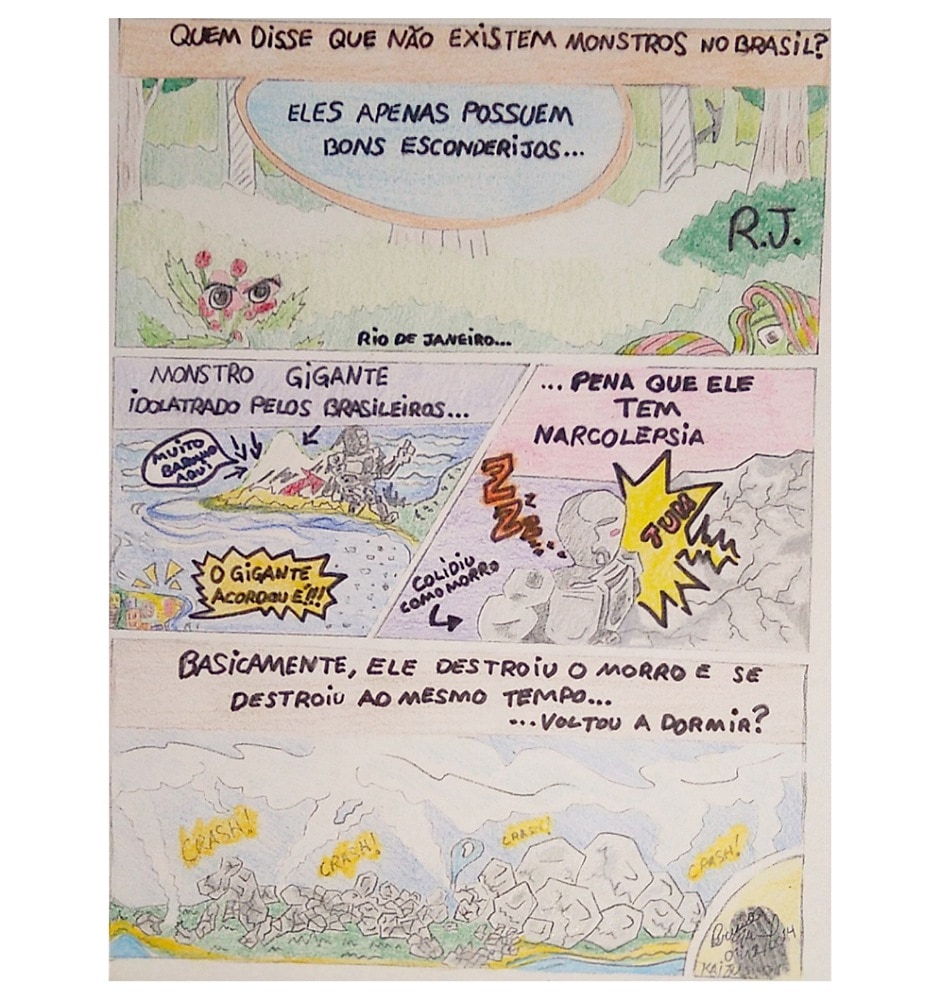 QUEM DISSE QUE NÃO EXISTEM MONSTROS NO BRASIL?
ELES APENAS POSSUEM
BONS ESCONDERIJOS...
R.J.
RIO DE JANEIRO...
MONSTRO GIGANTE
IDOLATRADO PELOS BRASILEIROS...
MUITO
BARULHO
AQUI
O GIGANTE
ACORDOU É!!!
... PENA QUE ELE
TEM
NARCOLEPSIA
ZZZ...
TUM
COLIDIU
COM O MORRO
BASICAMENTE, ELE DESTROIU O MORRO E SE
DESTROIU AO MESMO TEMPO...
...VOLTOU A DORMIR?
CRASH!
CRASH!
CRASH!
CRASH!
KAIJU